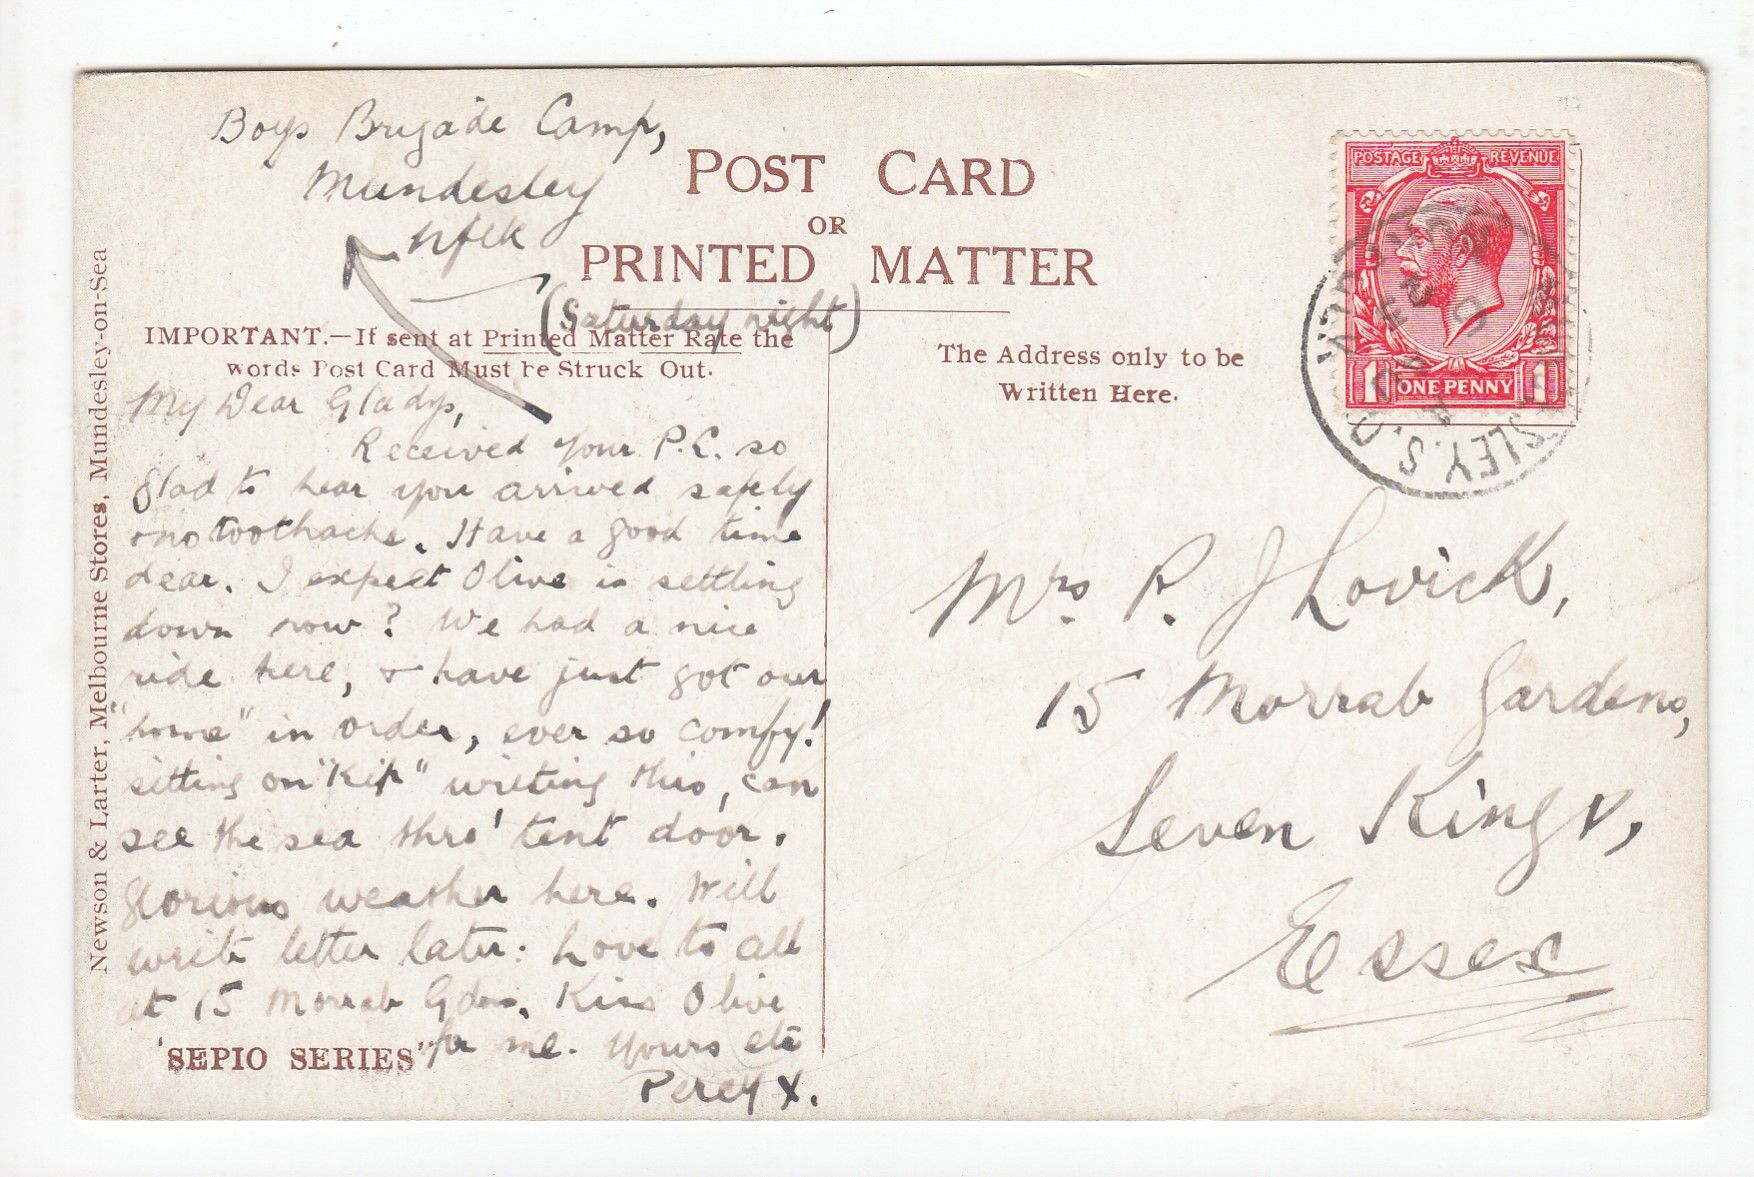 Boys Brigade Camp,
Mundesley
Nflk
(Saturday night)
POST CARD
OR
PRINTED MATTER
IMPORTANT.—If sent at Printed Matter Rate the
words Post Card Must be Struck Out.
The Address only to be
Written Here.
My Dear Gladys,
Received your P.C. so
glad to hear you arrived safely
& no toothache. Have a good time
dear. I expect Olive is settling
down now? We had a nice
ride here, & have just got our
"home" in order, ever so comfy!
sitting on "Kip" writing this, can
see the sea thro' tent door.
Glorious weather here. Will
write letter later: Love to all
at 15 Morrab Gdns. Kiss Olive
for me. Yours etc
Percy X.
'SEPIO SERIES"
Newson & Larter, Melbourne Stores, Mundesley-on-Sea
POSTAGE REVENUE
1 ONE PENNY 1
SLEY. S.O
Mrs P. J Lovick,
15 Morrab Gardens,
Seven Kings,
Essex